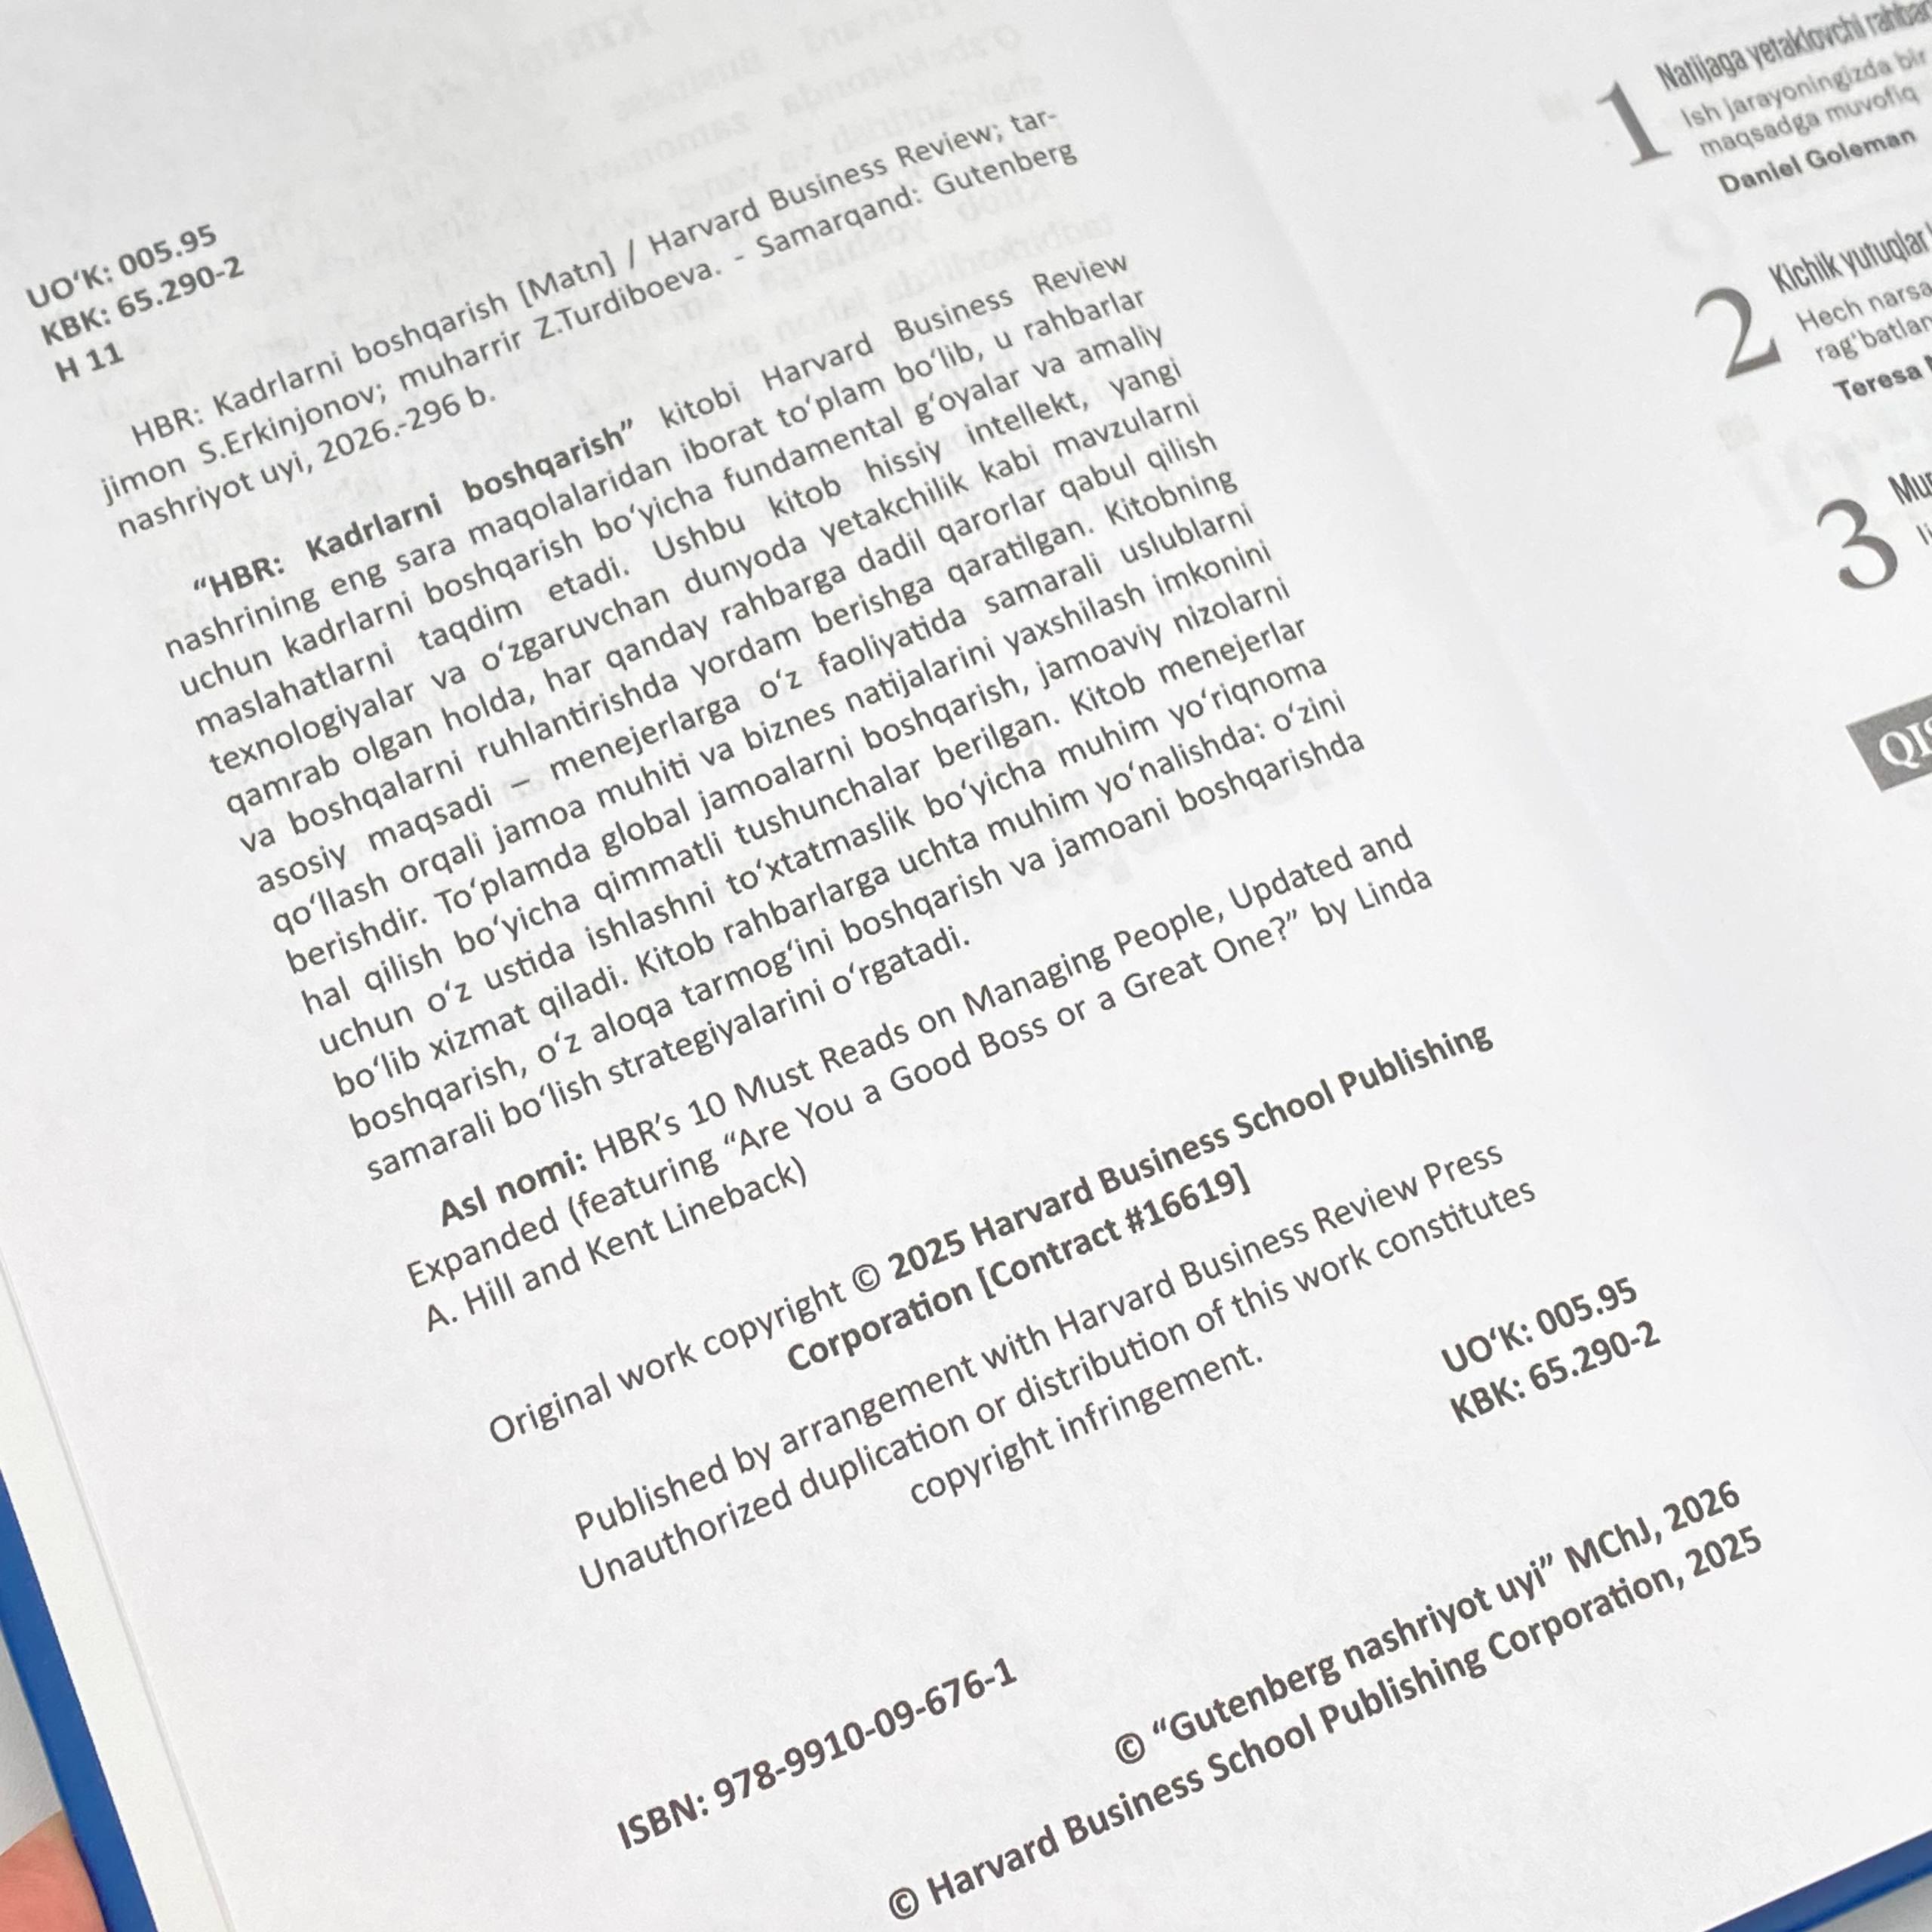 UO‘K: 005.95
KBK: 65.290-2
H 11
HBR: Kadrlarni boshqarish [Matn] / Harvard Business Review; tar-
jimon S.Erkinjonov; muharrir Z.Turdiboeva. - Samarqand: Gutenberg
nashriyot uyi, 2026.-296 b.
“HBR: Kadrlarni boshqarish” kitobi Harvard Business Review
nashrining eng sara maqolalaridan iborat to‘plam bo‘lib, u rahbarlar
uchun kadrlarni boshqarish bo‘yicha fundamental g‘oyalar va amaliy
maslahatlarni taqdim etadi. Ushbu kitob hissiy intellekt, yangi
texnologiyalar va o‘zgaruvchan dunyoda yetakchilik kabi mavzularni
qamrab olgan holda, har qanday rahbarga dadil qarorlar qabul qilish
va boshqalarni ruhlantirishda yordam berishga qaratilgan. Kitobning
asosiy maqsadi – menejerlarga o‘z faoliyatida samarali uslublarni
qo‘llash orqali jamoa muhiti va biznes natijalarini yaxshilash imkonini
berishdir. To‘plamda global jamoalarni boshqarish, jamoaviy nizolarni
hal qilish bo‘yicha qimmatli tushunchalar berilgan. Kitob menejerlar
uchun o‘z ustida ishlashni to‘xtatmaslik bo‘yicha muhim yo‘riqnoma
bo‘lib xizmat qiladi. Kitob rahbarlarga uchta muhim yo‘nalishda: o‘zini
boshqarish, o‘z aloqa tarmog‘ini boshqarish va jamoani boshqarishda
samarali bo‘lish strategiyalarini o‘rgatadi.
Asl nomi: HBR’s 10 Must Reads on Managing People, Updated and
Expanded (featuring “Are You a Good Boss or a Great One?” by Linda
A. Hill and Kent Lineback)
Original work copyright © 2025 Harvard Business School Publishing
Corporation [Contract #16619]
Published by arrangement with Harvard Business Review Press
Unauthorized duplication or distribution of this work constitutes
copyright infringement.
UO‘K: 005.95
KBK: 65.290-2
ISBN: 978-9910-09-676-1
© “Gutenberg nashriyot uyi” MChJ, 2026
© Harvard Business School Publishing Corporation, 2025
1
Natijaga yetaklovchi
Ish jarayoningizda bir
maqsadga muvofiq
Daniel Goleman
2
Kichik yutuqlar
Hech narsa
Teresa
3